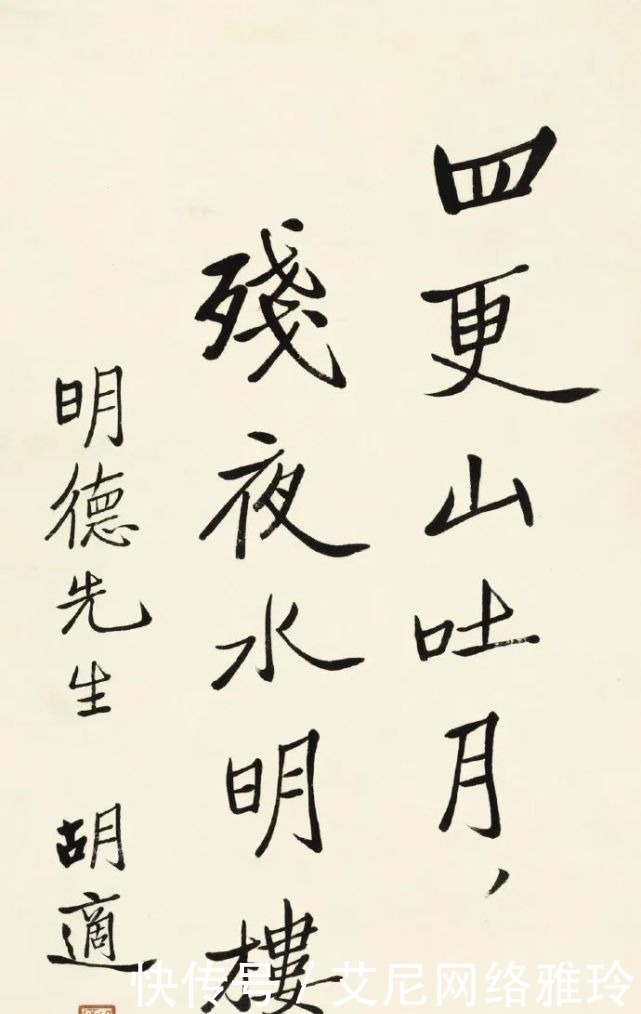 四更山吐月，
殘夜水明樓
明德先生
胡適
快传号 / 艾尼网络雅玲